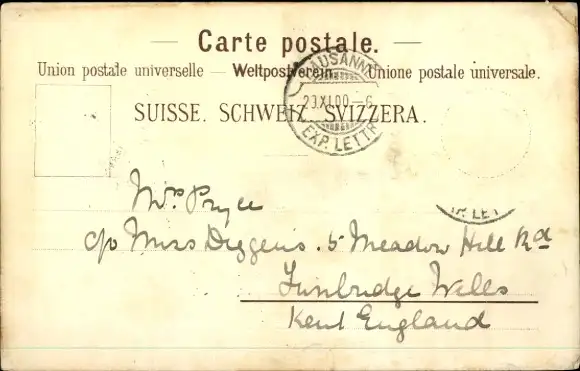 — Carte postale. —
Union postale universelle — Weltpostverein — Unione postale universale.
SUISSE. SCHWEIZ. SVIZZERA.
LAUSANNE
23.XI.00—6
EXP. LETTR
XP. LET
Mrs Pryce
c/o Miss Diggens. 5 Meadow Hill Rd
Tunbridge Wells
Kent England